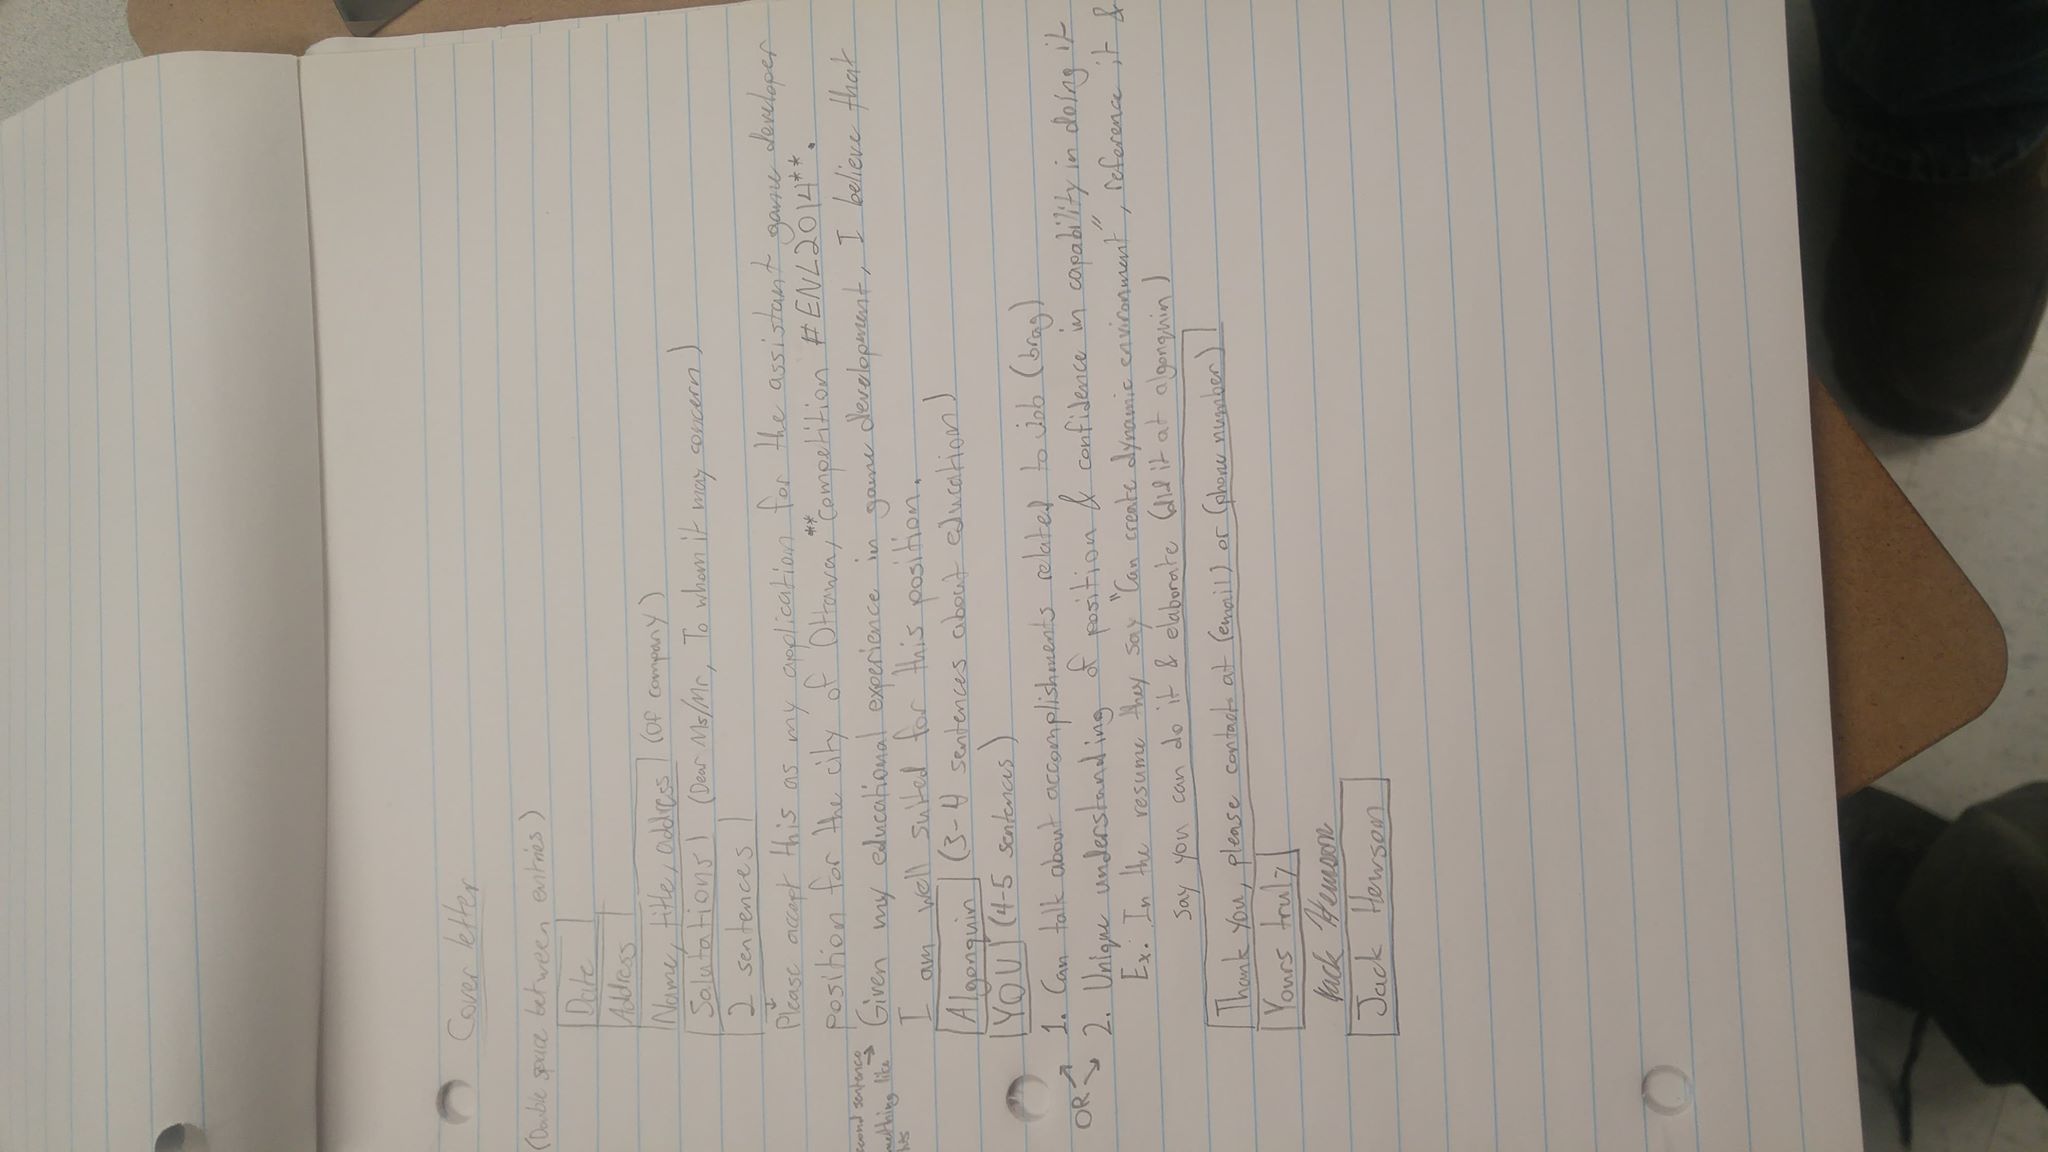 Cover letter
(Double space between entries)
Date
Address
Name, title, address (of company)
Salutations (Dear Ms/Mr, To whom it may concern)
2 sentences
Please accept this as my application for the assistant game developer
position for the city of Ottawa,** competition #ENL2014**.
second sentence something like this → Given my educational experience in game development, I believe that
I am well suited for this position.
Algonquin (3-4 sentences about education)
YOU (4-5 sentences)
1. Can talk about accomplishments related to job (brag)
OR 2. Unique understanding of position & confidence in capability in doing it
Ex: In the resume they say "Can create dynamic environment", reference it &
say you can do it & elaborate (did it at algonquin)
Thank you, please contact at (email) or (phone number)
Yours truly
Jack Hewson
Jack Hewson